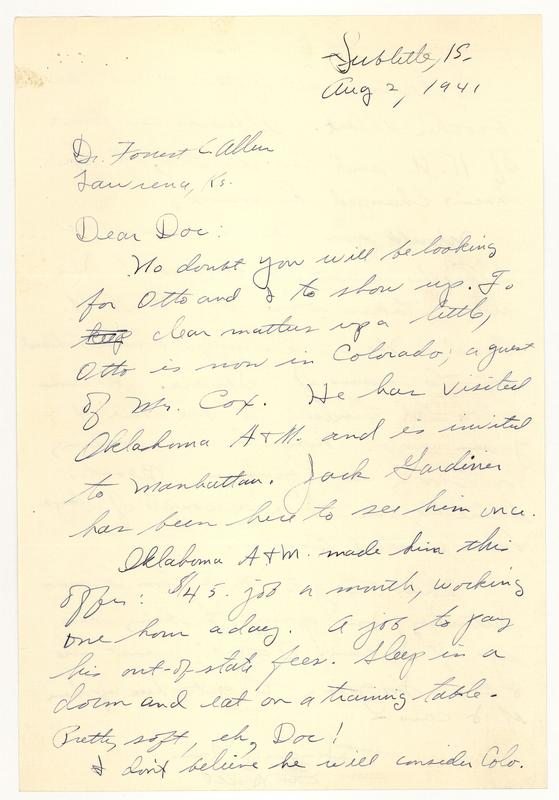 Sublette, Ks.
Aug 2, 1941
Dr. Forrest C Allen
Lawrence, Ks.
Dear Doc:
No doubt you will be looking
for Otto and I to show up. To
keep clear matters up a little,
Otto is now in Colorado; a guest
of Mr. Cox. He has visited
Oklahoma A+M. and is invited
to Manhattan. Jack Gardiner
has been here to see him once.
Oklahoma A+M. made him this
offer: $45. job a month, working
one hour a day. A job to pay
his out-of-state fees. Sleep in a
dorm and eat on a training table.
Pretty soft, eh, Doc!
I don't believe he will consider Colo.